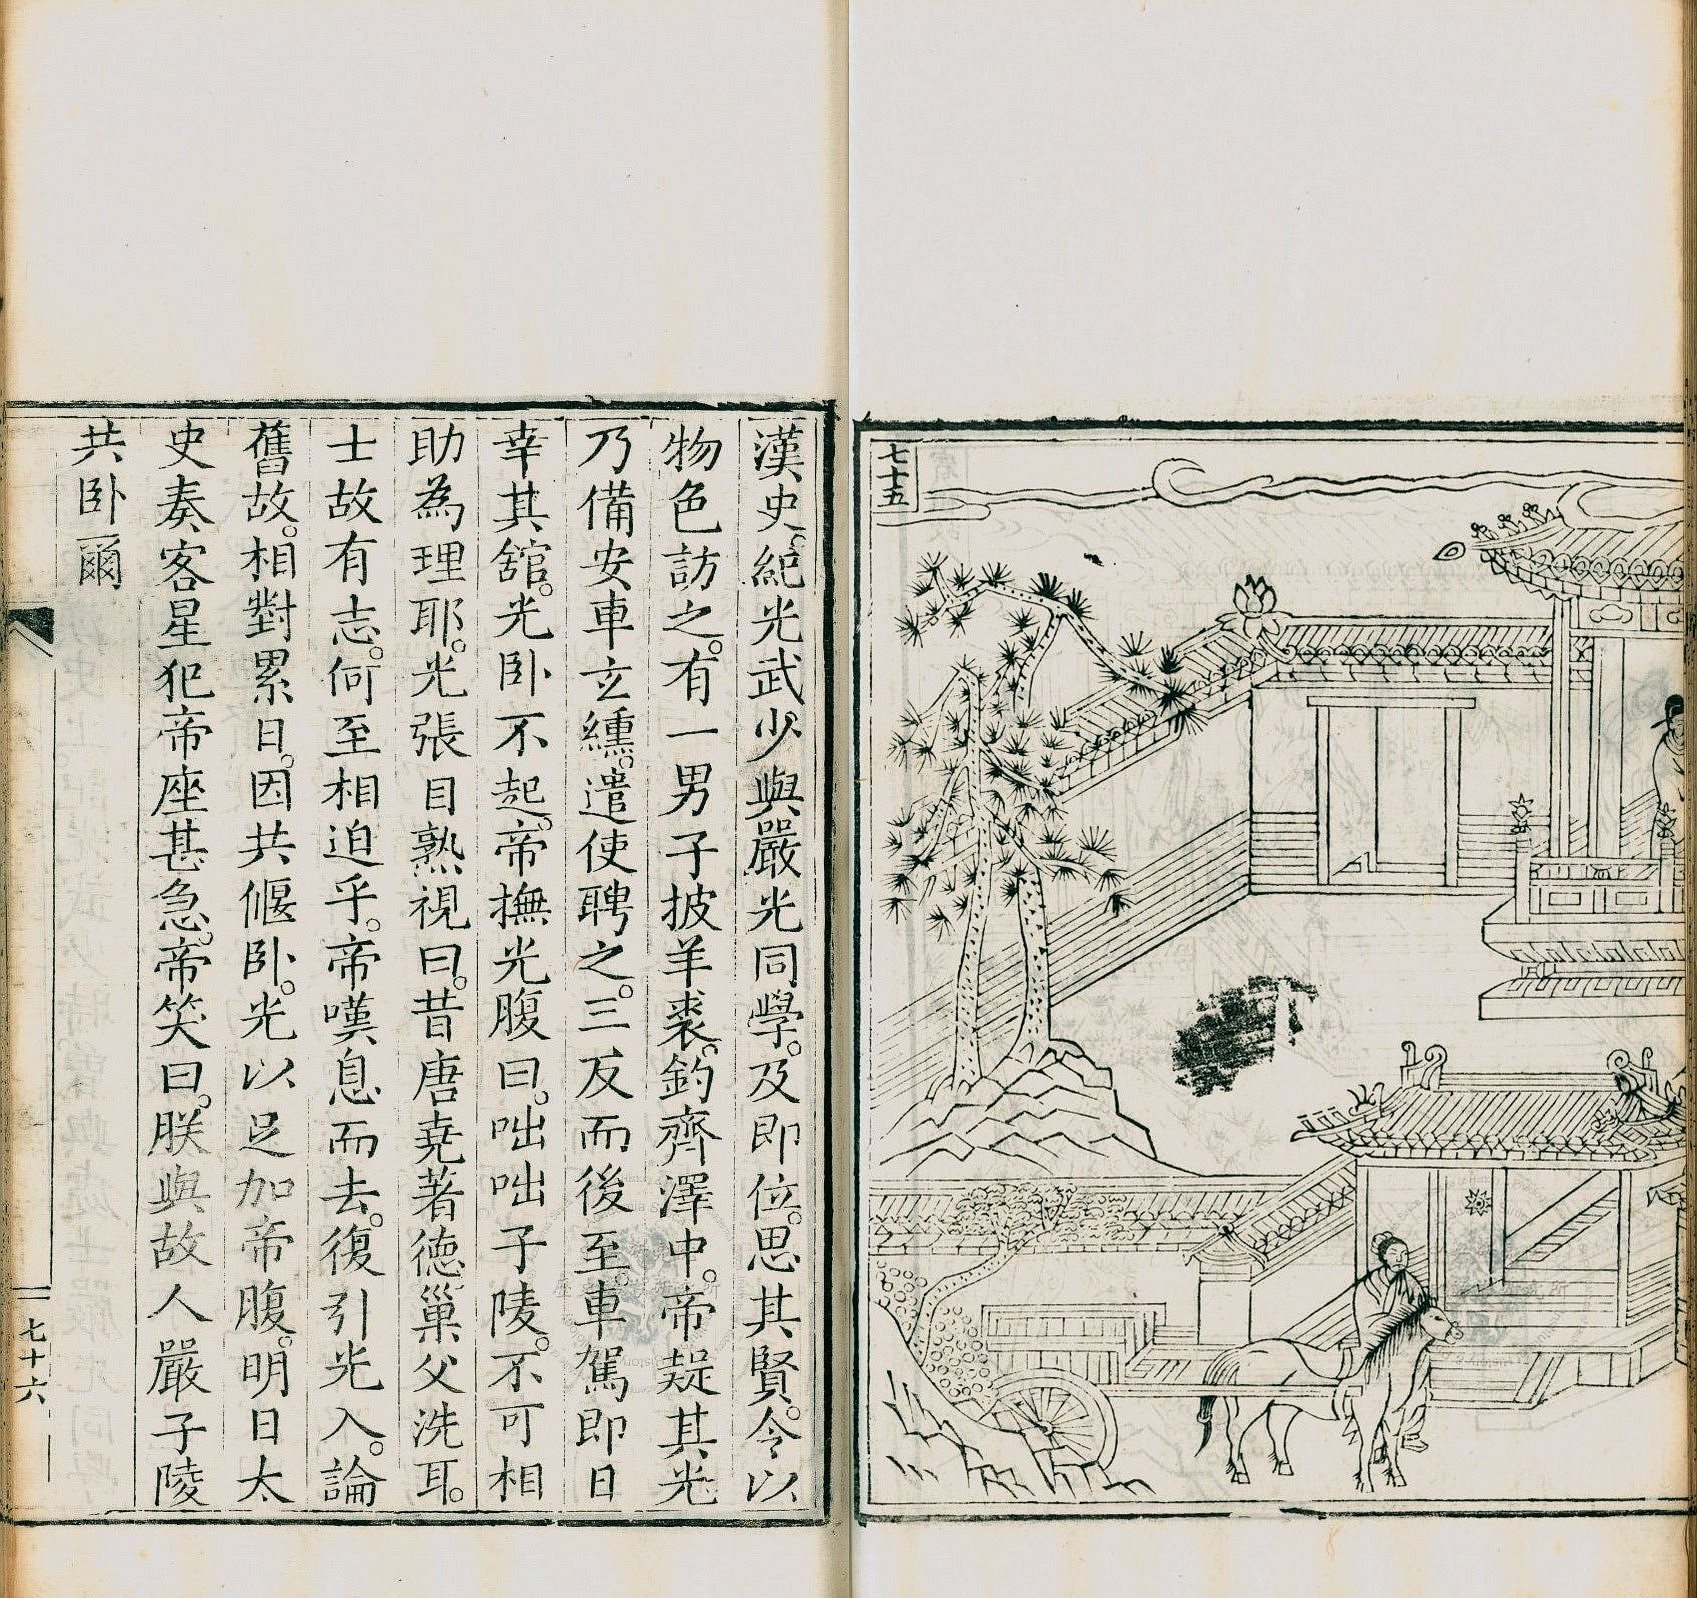 七十五
漢史。紀光武少與嚴光同學。及即位。思其賢。令以
物色訪之。有一男子披羊裘。釣齊澤中。帝疑其光
乃備安車玄纁。遣使聘之。三反而後至。車駕即日
幸其舘。光卧不起。帝撫光腹曰。咄咄子陵。不可相
助為理耶。光張目熟視曰。昔唐堯著德。巢父洗耳。
士故有志。何至相迫乎。帝嘆息而去。復引光入。論
舊故。相對累日。因共偃卧。光以足加帝腹。明日太
史奏。客星犯帝座甚急。帝笑曰。朕與故人嚴子陵
共卧爾
七十六